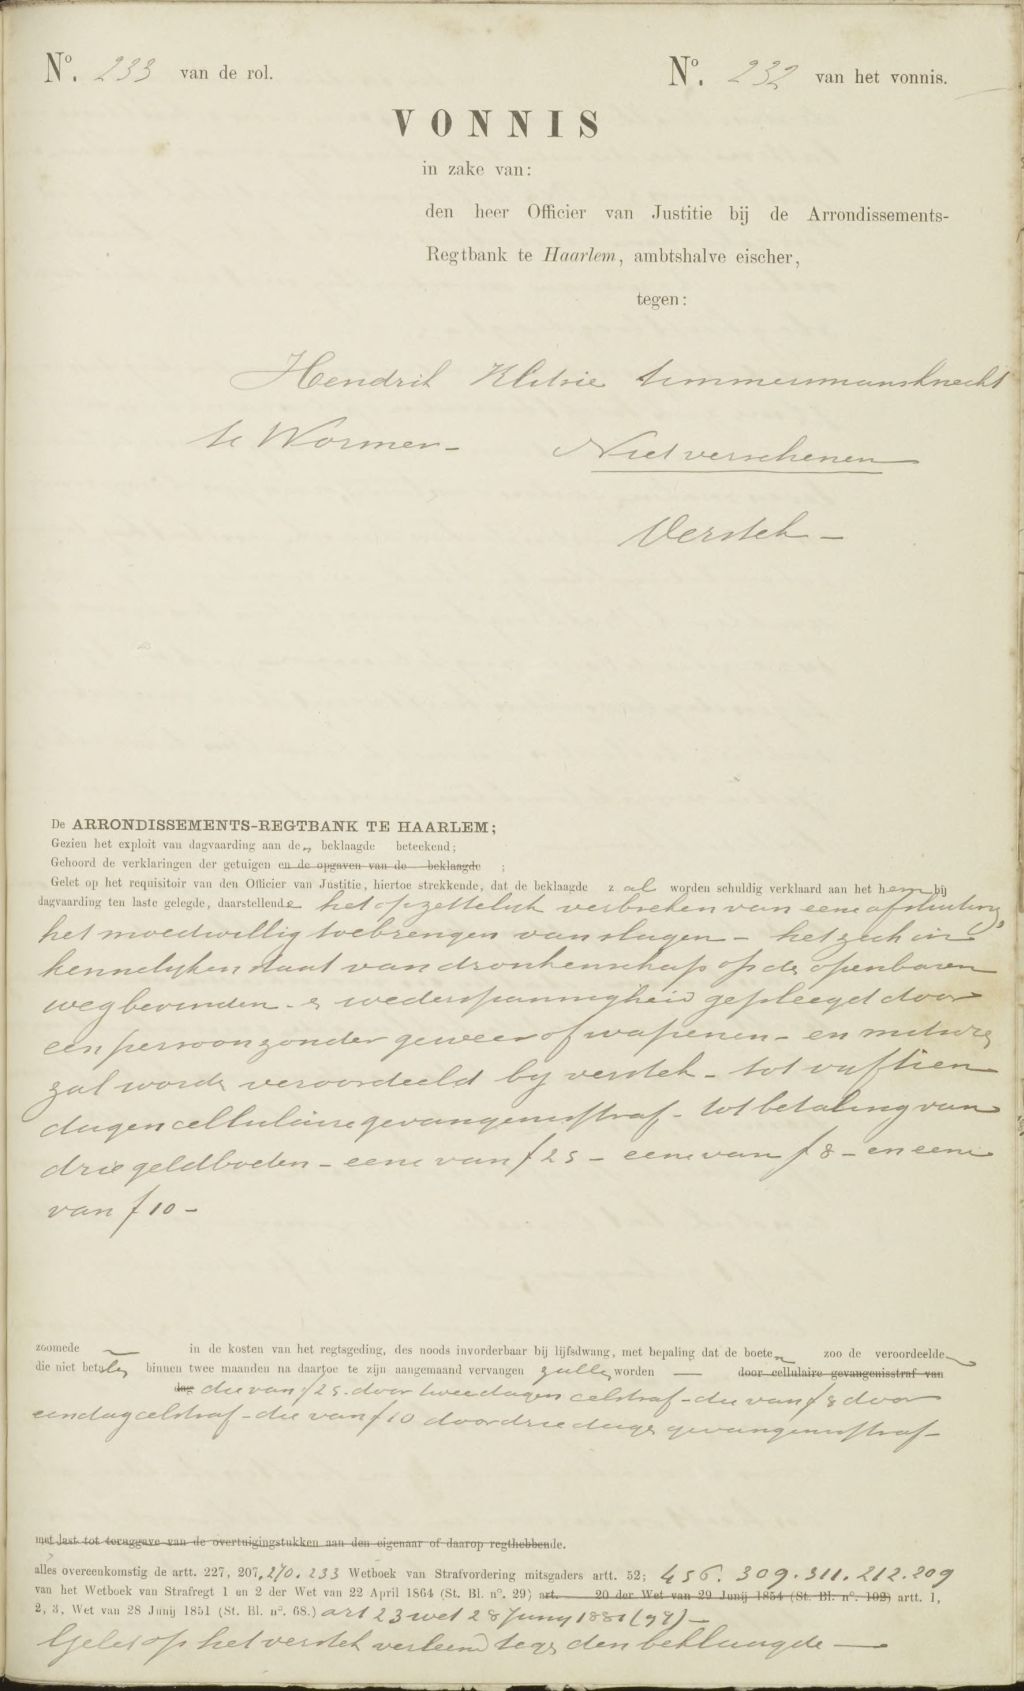 No. 233 van de rol.
No. 232 van het vonnis.
VONNIS
in zake van:
den heer Officier van Justitie bij de Arrondissements-
Regtbank te Haarlem, ambtshalve eischer,
tegen:
Hendrik Klitsie timmermansknecht
te Wormer - Niet verschenen
Verstek -
De ARRONDISSEMENTS-REGTBANK TE HAARLEM;
Gezien het exploit van dagvaarding aan de beklaagde beteekend;
Gehoord de verklaringen der getuigen en de opgaven van de beklaagde ;
Gelet op het requisitoir van den Officier van Justitie, hiertoe strekkende, dat de beklaagde zal worden schuldig verklaard aan het hem bij
dagvaarding ten laste gelegde, daarstellende het opzettelijk verbreken van eene afsluiting,
het moedwillig toebrengen van slagen - het zich in
kennelyken staat van dronkenschap op de openbaren
weg bevinden - & wederspannigheid gepleegd door
een persoon zonder geweer of wapenen - en mitsdien
zal worde veroordeeld by verstek - tot vyftien
dagen cellulaire gevangenisstraf - tot betaling van
drie geldboeten - eene van f 25 - eene van f 8 - en eene
van f 10 -
zoomede in de kosten van het regtsgeding, des noods invorderbaar bij lijfsdwang, met bepaling dat de boeten zoo de veroordeelde
die niet betale binnen twee maanden na daartoe te zijn aangemaand vervangen zulle worden — door cellulaire gevangenisstraf van
dag die van f 25 door twee dagen celstraf - die van f 8 door
een dag celstraf - die van f 10 door drie dage gevangenisstraf -
met last tot teruggave van de overtuigingstukken aan den eigenaar of daarop regthebbende.
alles overeenkomstig de artt. 227, 207, 270. 233 Wetboek van Strafvordering mitsgaders artt. 52; 456. 309. 311. 212. 209
van het Wetboek van Strafregt 1 en 2 der Wet van 22 April 1864 (St. Bl. no. 29) art. 20 der Wet van 29 Junij 1854 (St. Bl. no. 102) artt. 1,
2, 3, Wet van 28 Junij 1851 (St. Bl. no. 68.) art 23 wet 28 Juny 1881 (97) -
Gelet op het verstek verleend tege den beklaagde —